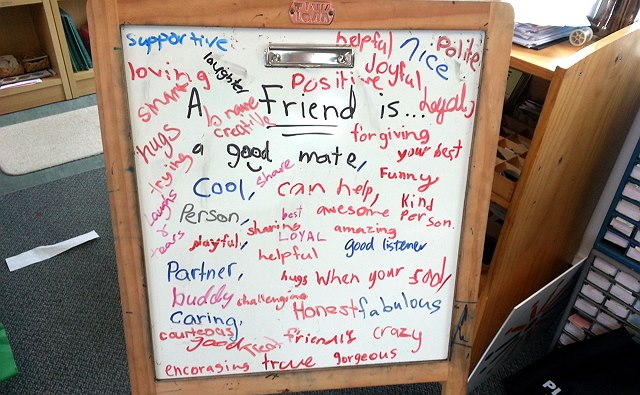 supportive
helpful
nice
Polite
loving
laughter
Positive
Joyful
Loyal
smart
A Friend is...
brave
creative
forgiving
hugs
a good mate,
your best
trying
share
Funny
Cool,
can help,
Kind
Person.
laughs
&
tears
Person,
best
awesome
sharing
amazing
playful,
LOYAL
good listener
helpful
Partner,
hugs When your sad,
buddy
challenging
Honest
fabulous
Caring,
courteous
good
Treat
friends
crazy
encoraging
true
gorgeous